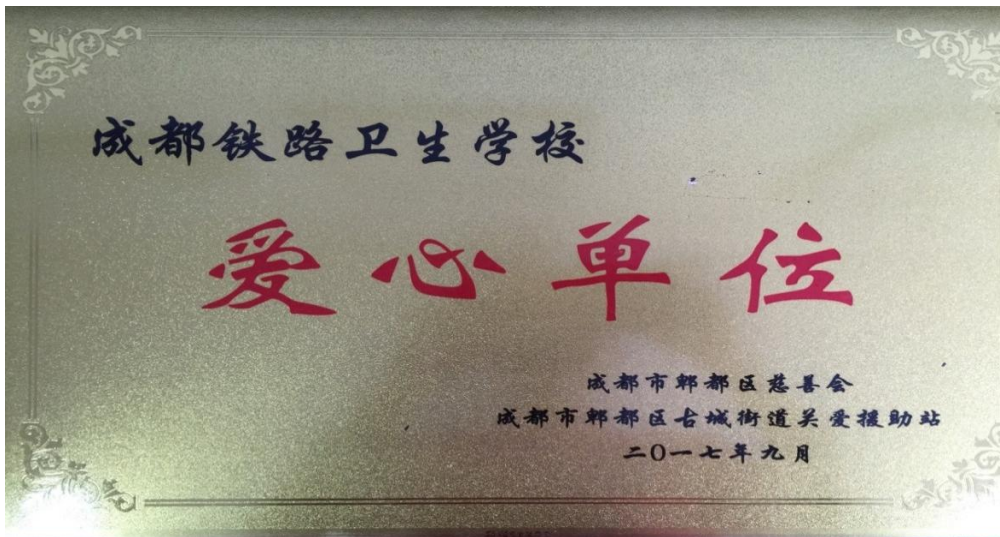 成都铁路卫生学校
爱心单位
成都市郫都区慈善会
成都市郫都区古城街道关爱援助站
二〇一七年九月